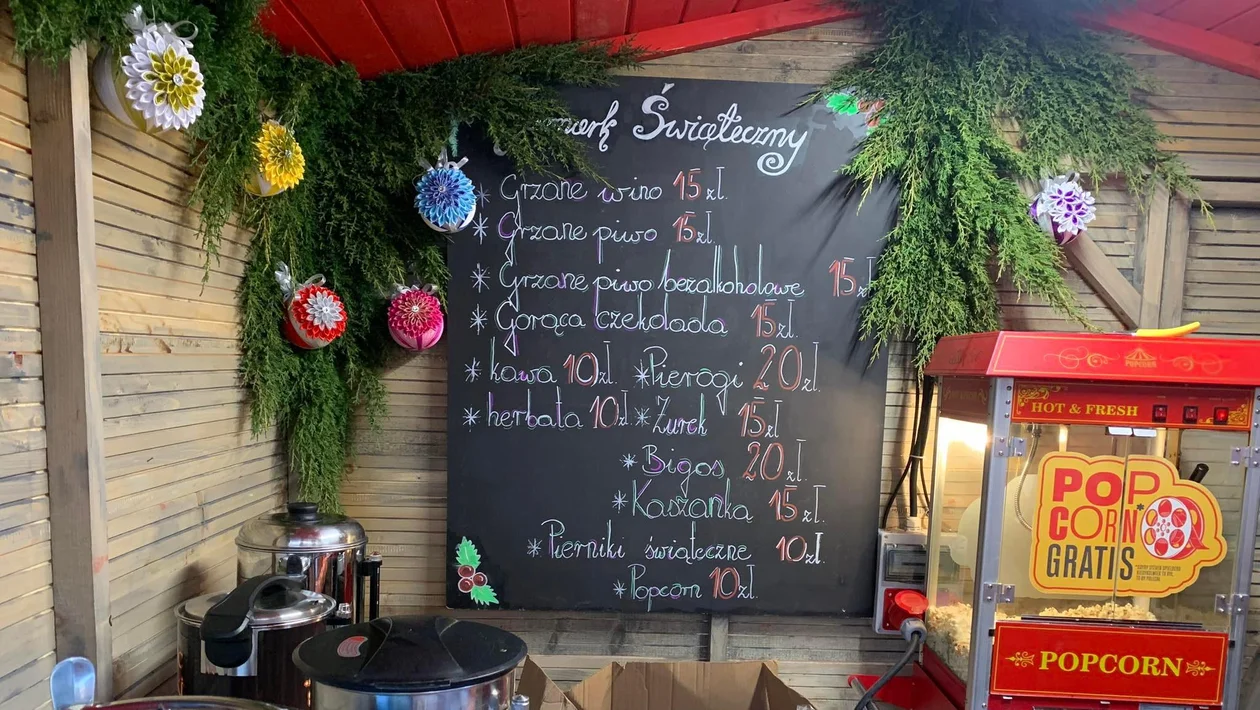 Świąteczny
Grzane wino 15 zł.
Grzane piwo 15 zł
Grzane piwo bezalkoholowe 15 zł
Gorąca czekolada 15 zł.
kawa 10 zł. Pierogi 20 zł.
herbata 10 zł. Żurek 15 zł
Bigos 20 zł.
Kaszanka 15 zł.
Pierniki świąteczne 10 zł.
Popcorn 10 zł.
POPCORN
HOT & FRESH
POP
CORN*
GRATIS
POPCORN